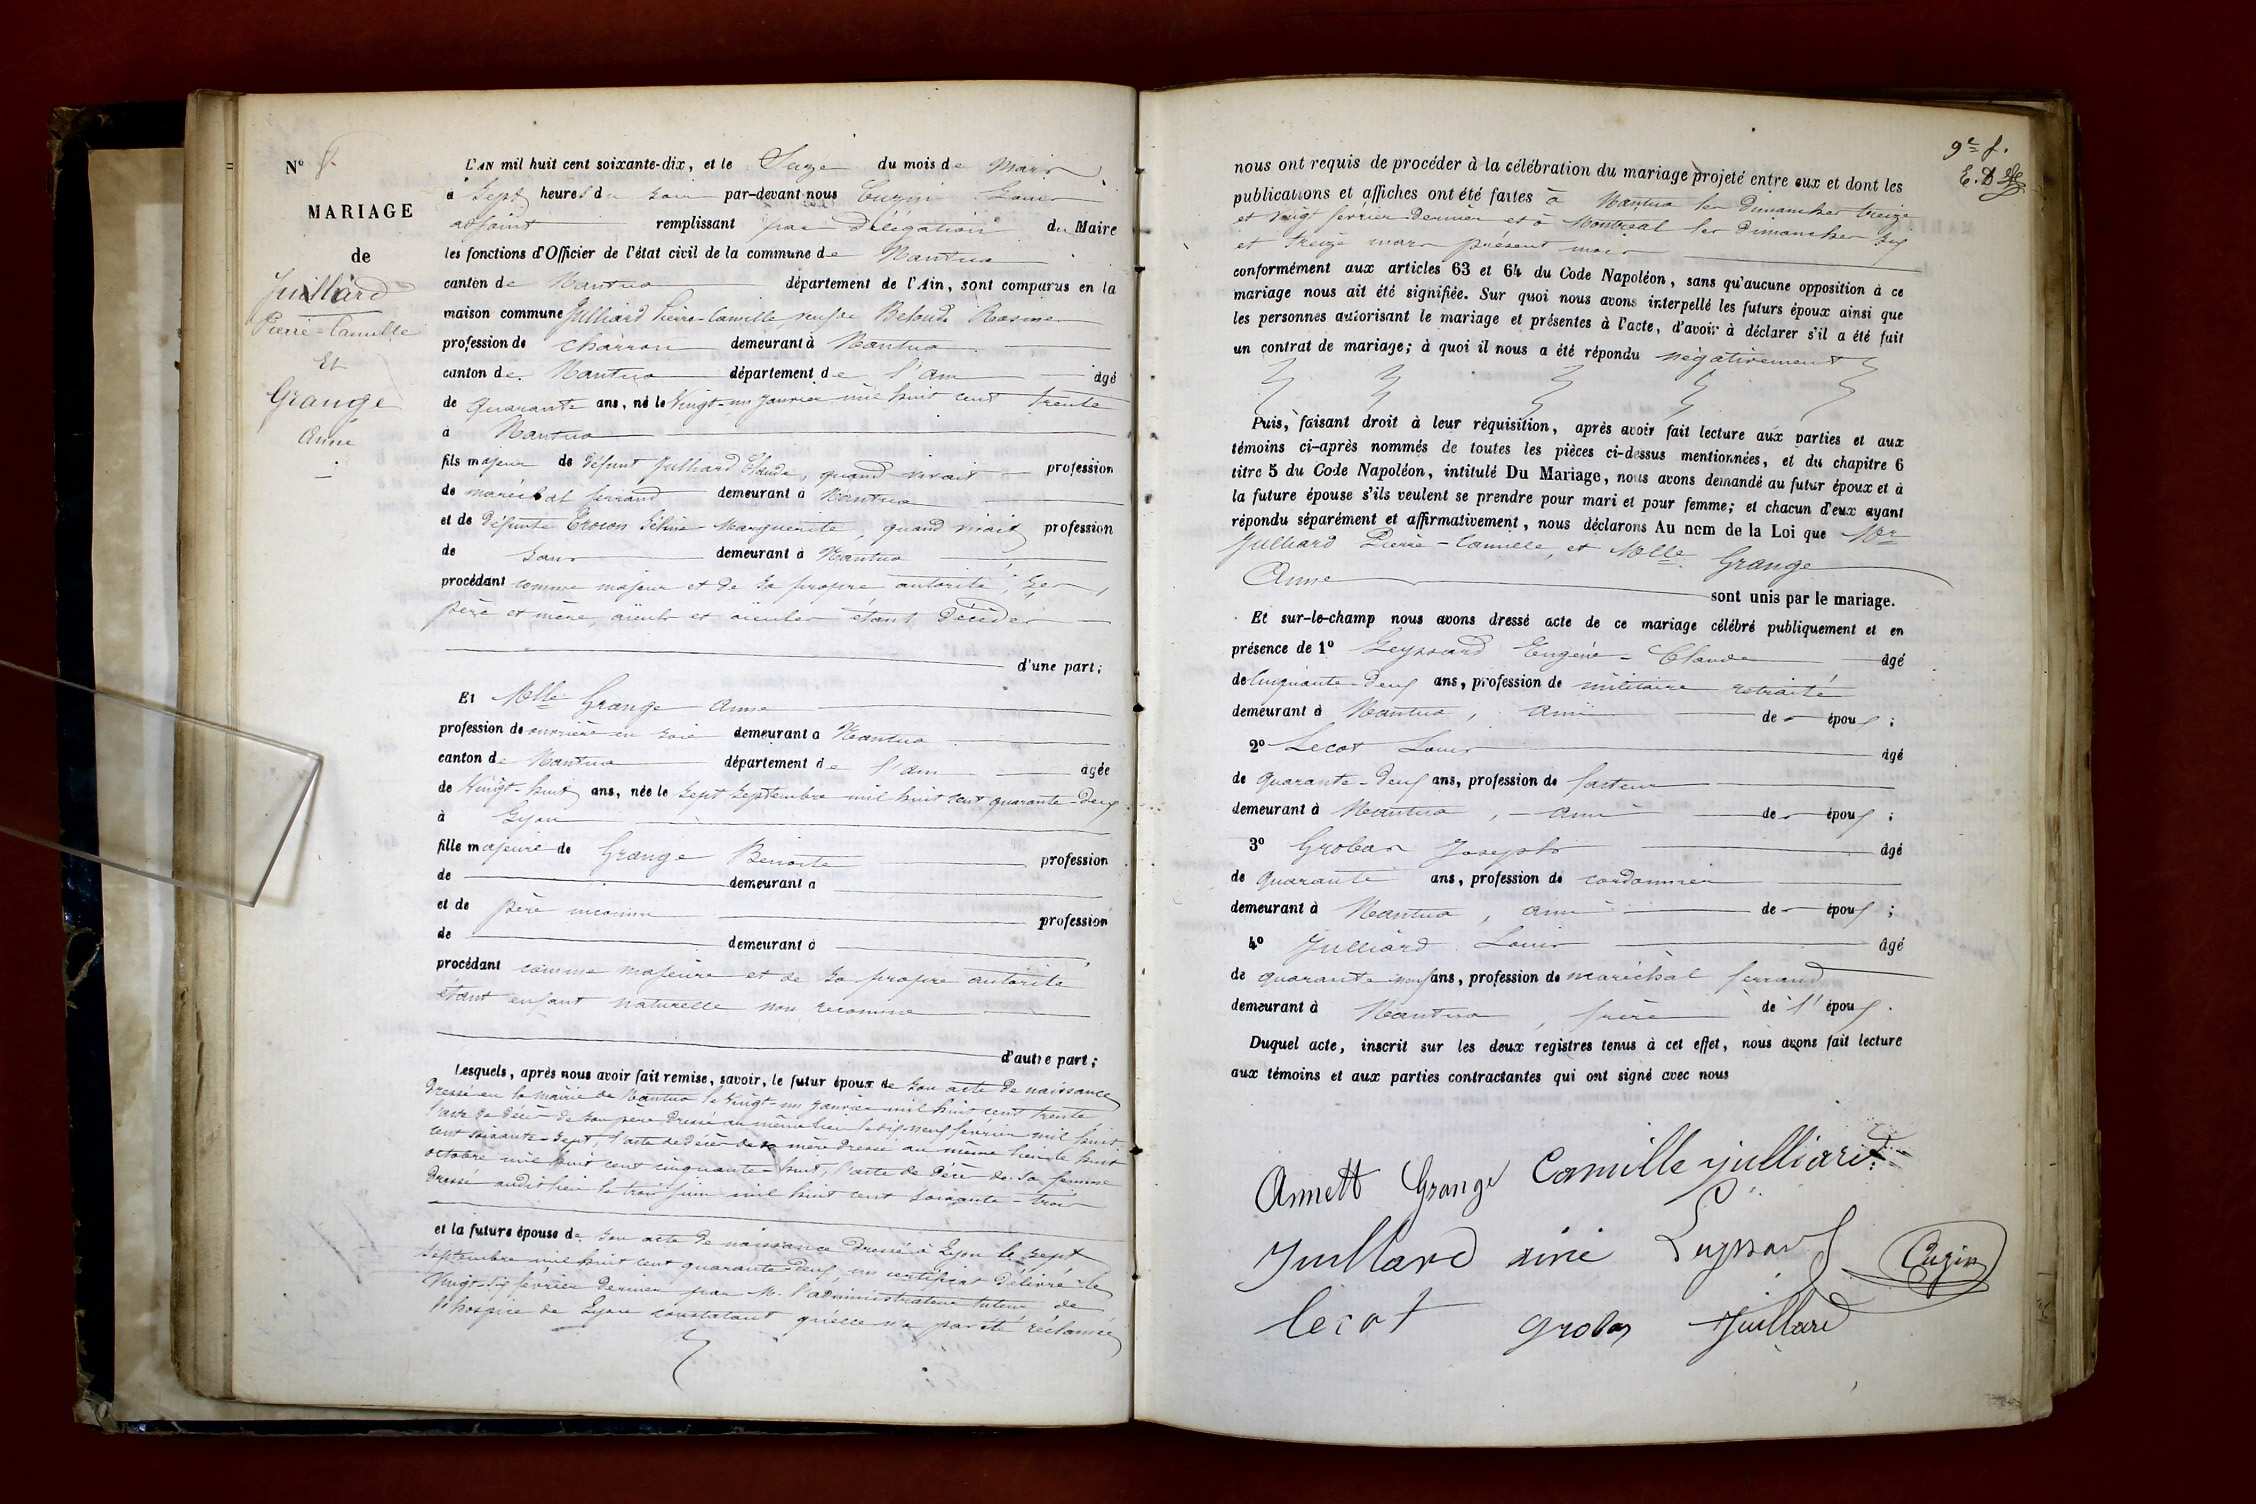 N°
MARIAGE
de
Juilliard
Pierre-Camille
Et
Grange
Anne
L'AN mil huit cent soixante-dix, et le Seize du mois de Mars
à Sept heures du soir par-devant nous Cuzin Louis
adjoint remplissant par délégation du Maire
les fonctions d'Officier de l'état civil de la commune de Nantua
canton de Nantua département de l'Ain, sont comparus en la
maison commune Julliard Pierre-Camille, veuf de Rosine
profession de charron demeurant à Nantua
canton de Nantua département de l'ain âgé
de Quarante ans, né le Vingt-un janvier mil huit cent trente
à Nantua
fils majeur de défunt Julliard Claude, quand vivait profession
de maréchal ferrand demeurant à Nantua
et de défunte Marguerite, quand vivait profession
de sans demeurant à Nantua
procédant comme majeur et de sa propre autorité, ses
père et mère, aïeuls et aïeules étant décédés
d'une part;
Et Melle Grange Anne
profession de ouvrière en soie demeurant à Nantua
canton de Nantua département de l'ain âgée
de Vingt-huit ans, née le sept septembre mil huit cent quarante-deux
à Lyon
fille majeure de Grange Benoite profession
de demeurant à
et de père inconnu profession
de demeurant à
procédant comme majeure et de sa propre autorité
étant enfant naturelle non reconnue
d'autre part;
Lesquels, après nous avoir fait remise, savoir, le futur époux de son acte de naissance
dressé en la mairie de Nantua le vingt-un janvier mil huit cent trente
l'acte de décès de son père dressé au même lieu le dix neuf février mil huit
cent soixante-sept, l'acte de décès de sa mère dressé au même lieu le huit
octobre mil huit cent cinquante-huit, l'acte de décès de sa femme
dressé audit lieu le trois juin mil huit cent soixante-trois
et la future épouse de son acte de naissance dressé à Lyon le sept
septembre mil huit cent quarante deux, un certificat délivré le
vingt-six février dernier par M. l'administrateur tuteur de
l'hospice de Lyon constatant qu'elle n'a pas été réclamée
9e f.
nous ont requis de procéder à la célébration du mariage projeté entre eux et dont les
publications et affiches ont été faites à Nantua les dimanches treize
et vingt février dernier et à Montréal les dimanches six
et treize mars présent mois
conformément aux articles 63 et 64 du Code Napoléon, sans qu'aucune opposition à ce
mariage nous ait été signifiée. Sur quoi nous avons interpellé les futurs époux ainsi que
les personnes autorisant le mariage et présentes à l'acte, d'avoir à déclarer s'il a été fait
un contrat de mariage; à quoi il nous a été répondu négativement
Puis, faisant droit à leur réquisition, après avoir fait lecture aux parties et aux
témoins ci-après nommés de toutes les pièces ci-dessus mentionnées, et du chapitre 6
titre 5 du Code Napoléon, intitulé Du Mariage, nous avons demandé au futur époux et à
la future épouse s'ils veulent se prendre pour mari et pour femme; et chacun d'eux ayant
répondu séparément et affirmativement, nous déclarons Au nom de la Loi que Mr
Julliard Pierre-Camille, et Melle Grange
Anne
sont unis par le mariage.
Et sur-le-champ nous avons dressé acte de ce mariage célébré publiquement et en
présence de 1° Leyssard Eugène-Claude âgé
de Cinquante-deux ans, profession de militaire retraité
demeurant à Nantua, ami de époux;
2° Lecot Louis âgé
de Quarante-deux ans, profession de facteur
demeurant à Nantua, ami de époux;
3° Groban Joseph âgé
de Quarante ans, profession de cordonnier
demeurant à Nantua, ami de époux;
4° Julliard Louis âgé
de quarante neuf ans, profession de maréchal ferrand
demeurant à Nantua, frère de l'époux.
Duquel acte, inscrit sur les deux registres tenus à cet effet, nous avons fait lecture
aux témoins et aux parties contractantes qui ont signé avec nous
Annett Grange Camille Julliard
Juillard ainé Leyssard Cuzin
lecot groban Juillard